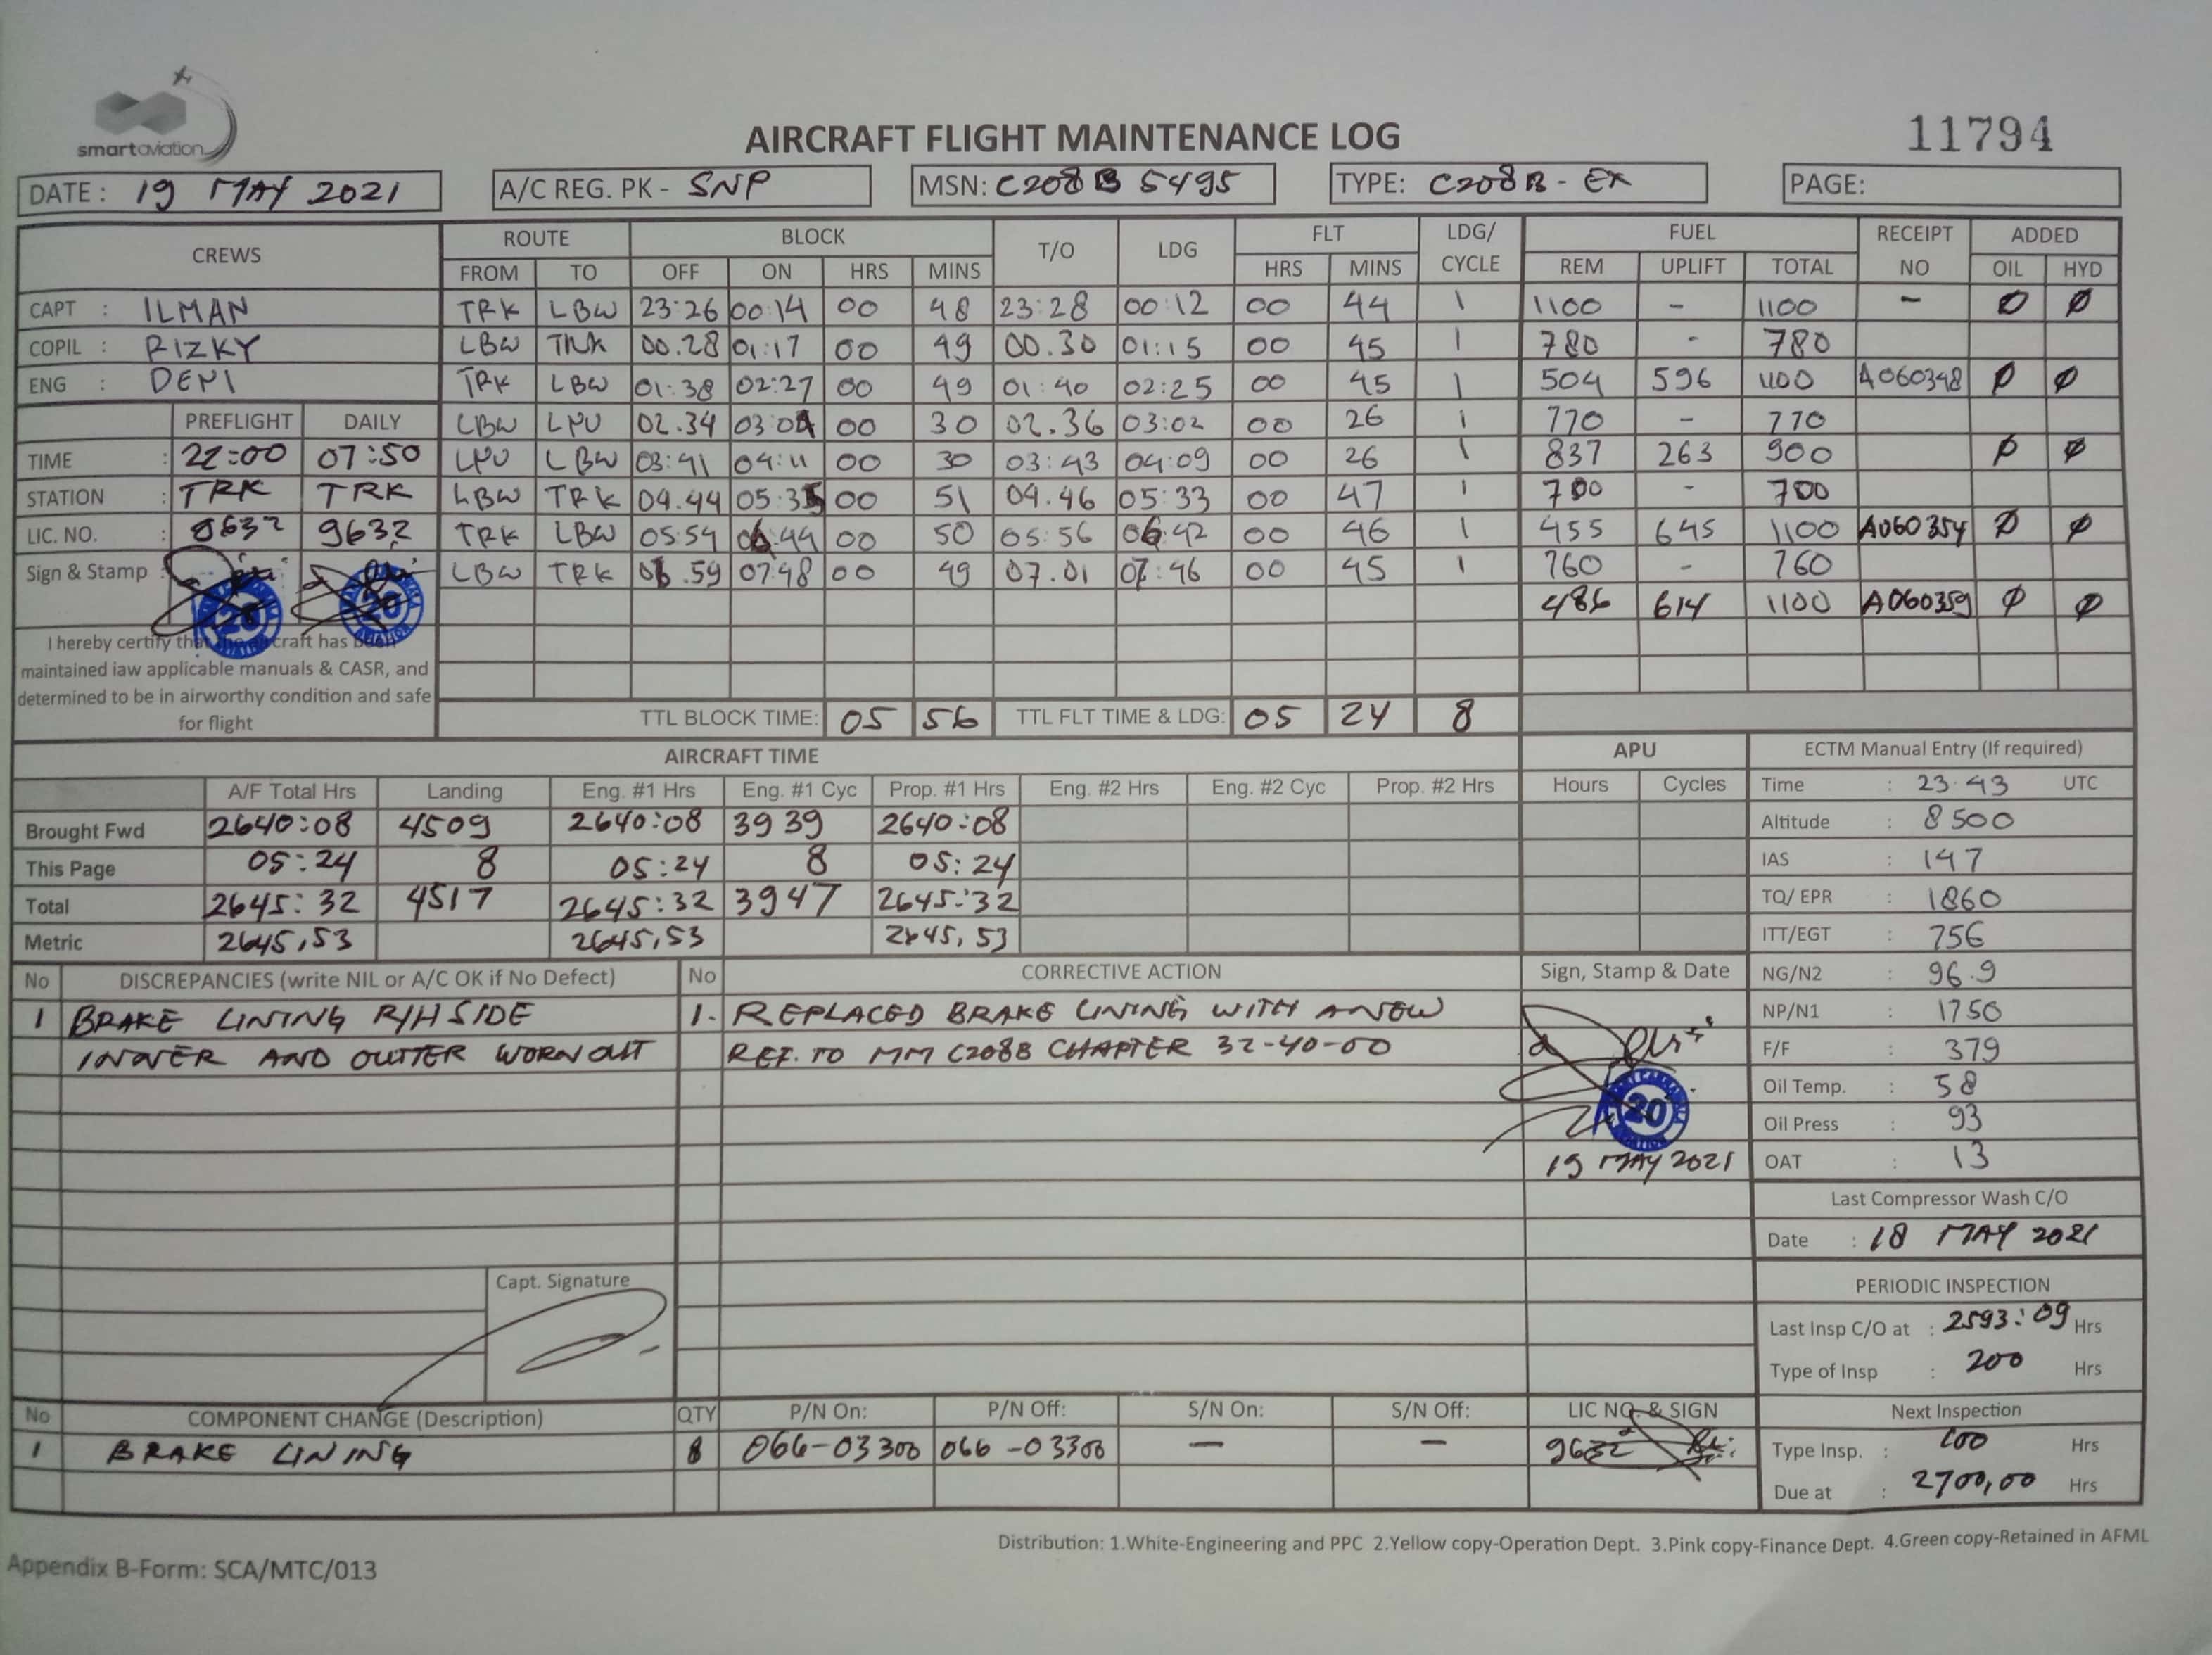 smartaviation
AIRCRAFT FLIGHT MAINTENANCE LOG
11794
DATE : 19 MAY 2021 A/C REG. PK - SNP MSN: C208B 5495 TYPE: C208B - EX PAGE:
CREWS ROUTE BLOCK T/O LDG FLT LDG/ CYCLE FUEL RECEIPT NO ADDED
FROM TO OFF ON HRS MINS HRS MINS REM UPLIFT TOTAL OIL HYD
CAPT : ILMAN TRK LBW 23:26 00:14 00 48 23:28 00:12 00 44 1 1100 - 1100 - Ø Ø
COPIL : RIZKY LBW TRK 00.28 01:17 00 49 00.30 01:15 00 45 1 780 - 780
ENG : DENI TRK LBW 01:38 02:27 00 49 01:40 02:25 00 45 1 504 596 1100 A060348 Ø Ø
PREFLIGHT DAILY LBW LPU 02.34 03:04 00 30 02.36 03:02 00 26 1 770 - 770
TIME : 22:00 07:50 LPU LBW 03:41 04:11 00 30 03:43 04:09 00 26 1 837 263 900 Ø Ø
STATION : TRK TRK LBW TRK 04.44 05:35 00 51 04.46 05:33 00 47 1 700 - 700
LIC. NO. : 9632 9632 TRK LBW 05:54 06:44 00 50 05:56 06:42 00 46 1 455 645 1100 A060354 Ø Ø
Sign & Stamp : LBW TRK 06.59 07:48 00 49 07.01 07:46 00 45 1 760 - 760
20 20
486 614 1100 A060359 Ø Ø
I hereby certify that the aircraft has been
maintained iaw applicable manuals & CASR, and
determined to be in airworthy condition and safe
for flight
TTL BLOCK TIME: 05 56 TTL FLT TIME & LDG: 05 24 8
AIRCRAFT TIME APU ECTM Manual Entry (If required)
A/F Total Hrs Landing Eng. #1 Hrs Eng. #1 Cyc Prop. #1 Hrs Eng. #2 Hrs Eng. #2 Cyc Prop. #2 Hrs Hours Cycles Time : 23.43 UTC
Brought Fwd 2640:08 4509 2640:08 3939 2640:08 Altitude : 8500
This Page 05:24 8 05:24 8 05:24 IAS : 147
Total 2645:32 4517 2645:32 3947 2645:32 TQ/ EPR : 1860
Metric 2645,53 2645,53 2645,53 ITT/EGT : 756
No DISCREPANCIES (write NIL or A/C OK if No Defect) No CORRECTIVE ACTION Sign, Stamp & Date NG/N2 : 96.9
1 BRAKE LINING R/H SIDE 1. REPLACED BRAKE LINING WITH A NEW NP/N1 : 1750
INNER AND OUTTER WORN OUT REF. TO MM C208B CHAPTER 32-40-00 F/F : 379
Oil Temp. : 58
20
Oil Press : 93
19 MAY 2021 OAT : 13
Last Compressor Wash C/O
Date : 18 MAY 2021
Capt. Signature
PERIODIC INSPECTION
Last Insp C/O at : 2593:09 Hrs
Type of Insp : 200 Hrs
No COMPONENT CHANGE (Description) QTY P/N On: P/N Off: S/N On: S/N Off: LIC NO. & SIGN Next Inspection
1 BRAKE LINING 8 066-03300 066-03300 - - 9632 Type Insp. : 100 Hrs
Due at : 2700,00 Hrs
Distribution: 1.White-Engineering and PPC 2.Yellow copy-Operation Dept. 3.Pink copy-Finance Dept. 4.Green copy-Retained in AFML
Appendix B-Form: SCA/MTC/013